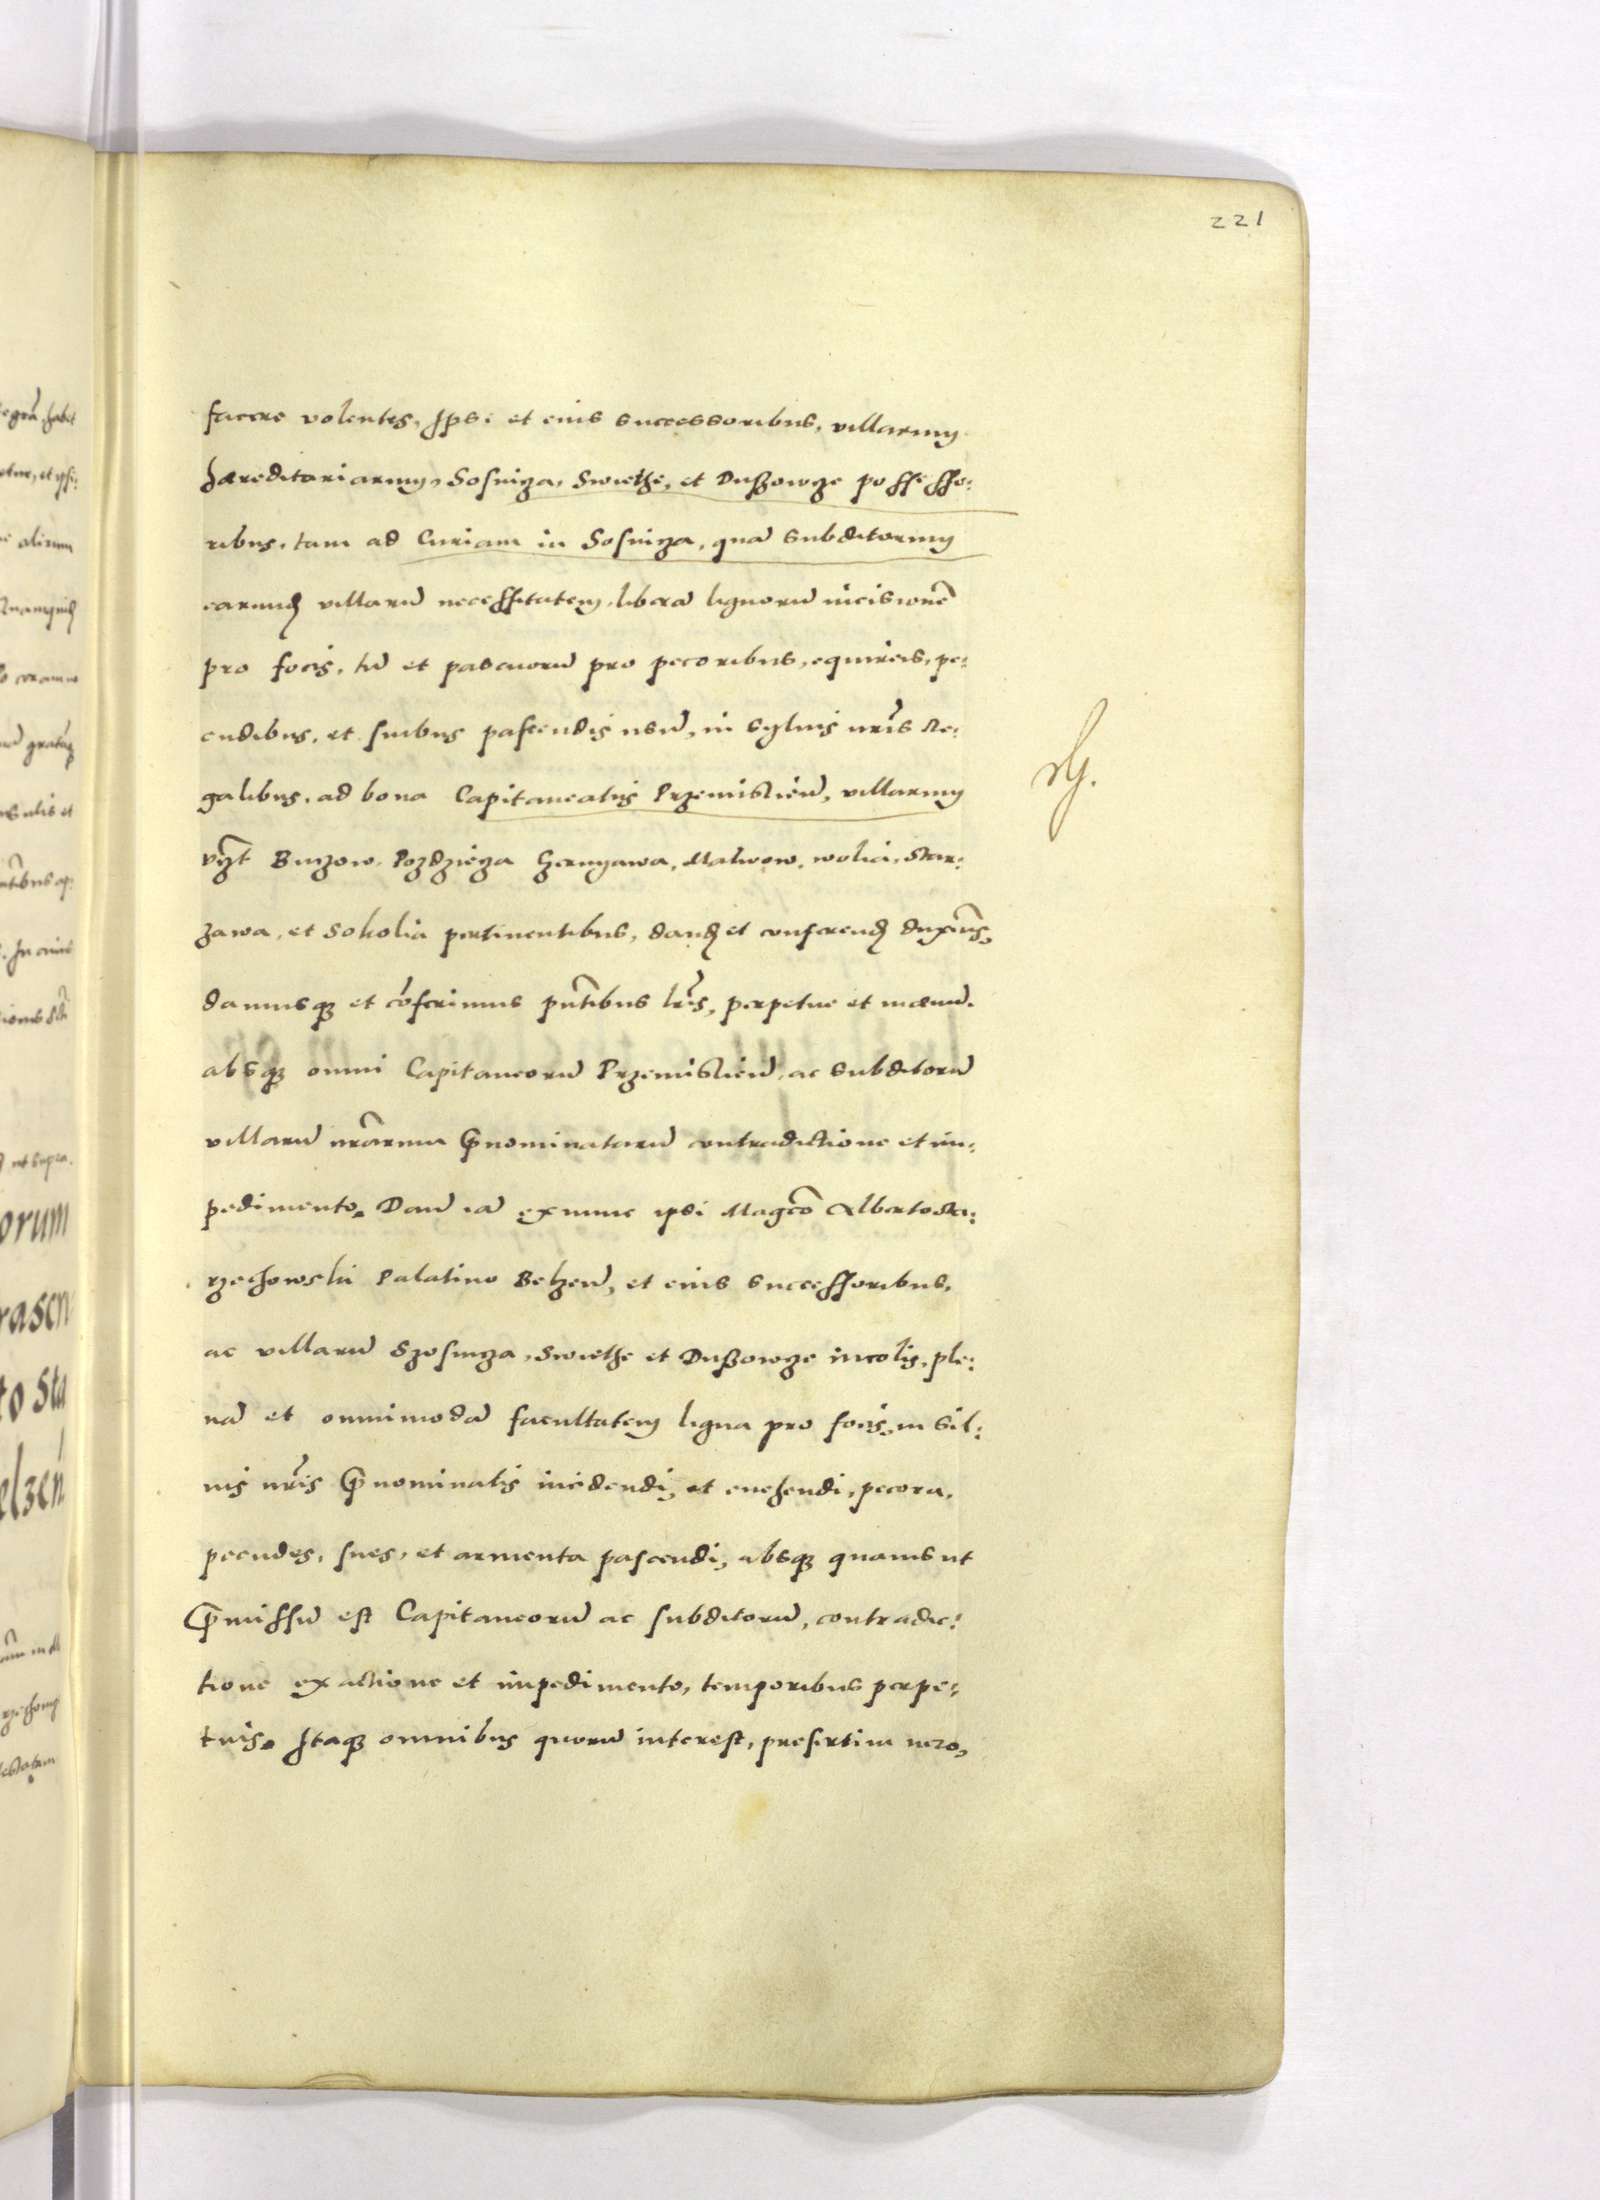 221
facere volentes, Ipsi et eius successoribus, villarum
hæreditariarum, Sosnicza, Swiethe, et Dußowcze possesso:
ribus, tam ad Curiam in Sosnicza, quā subditorum
earund villarū necessitatem, liberā lignorū incisionē
pro focis, tū et pascuorū pro pecoribus, equireis, pe:
cudibus, et suibus pascendis usū, in syluis nr̄is Re:
galibus, ad bona Capitaneatus Przemislień, villarum
vzt Buczow, Pozdziecza Czernyawa, Malnow, wolia, Star:
zawa, et Sokolia pertinentibus, dand et conferend duxim̄s,
damusq et cōferimus pn̄tibus lr̄is, perpetue et in æuū.
absq omni Capitaneorū Przemislień, ac subditorū
villarū nr̄arum p̄nominatarū contradictione et im:
pedimento. Dań eā ex nunc ipsi Magco Alberto Sta:
rzechowski Palatino Belzeń, et eius successoribus,
ac villarū Szosnicza, Swiethe et Dußowcze incolis, ple:
nā et omnimodā facultatem ligna pro focis, in sil:
uis nr̄is p̄nominatis incidendi, et euehendi, pecora,
pecudes, sues, et armenta pascendi, absq quauis ut
p̄missū est Capitaneorū ac subditorū, contradic:
tione exactione et impedimento, temporibus perpe:
tuis. Itaq omnibus quorū interest, presertim vero,